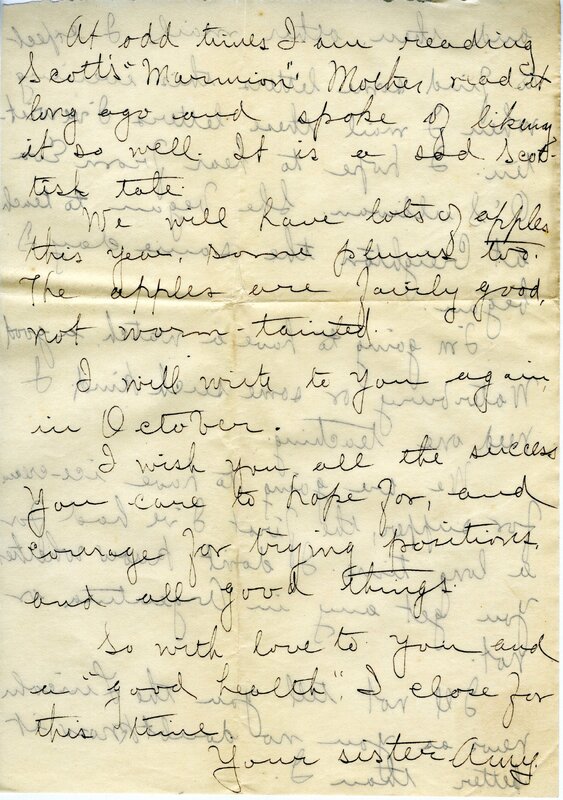 At odd times I am reading
Scott's "Marmion". Mother read it
long ago and spoke of liking
it so well. It is a sad Scot-
tish tale.
We will have lots of apples
this year, some plums too.
The apples are fairly good,
not worm-tainted.
I will write to you again,
in October.
I wish you all the success
you care to hope for, and
courage for trying positions,
and all good things.
So with love to you and
a "good health" I close for
this time
Your sister Amy.